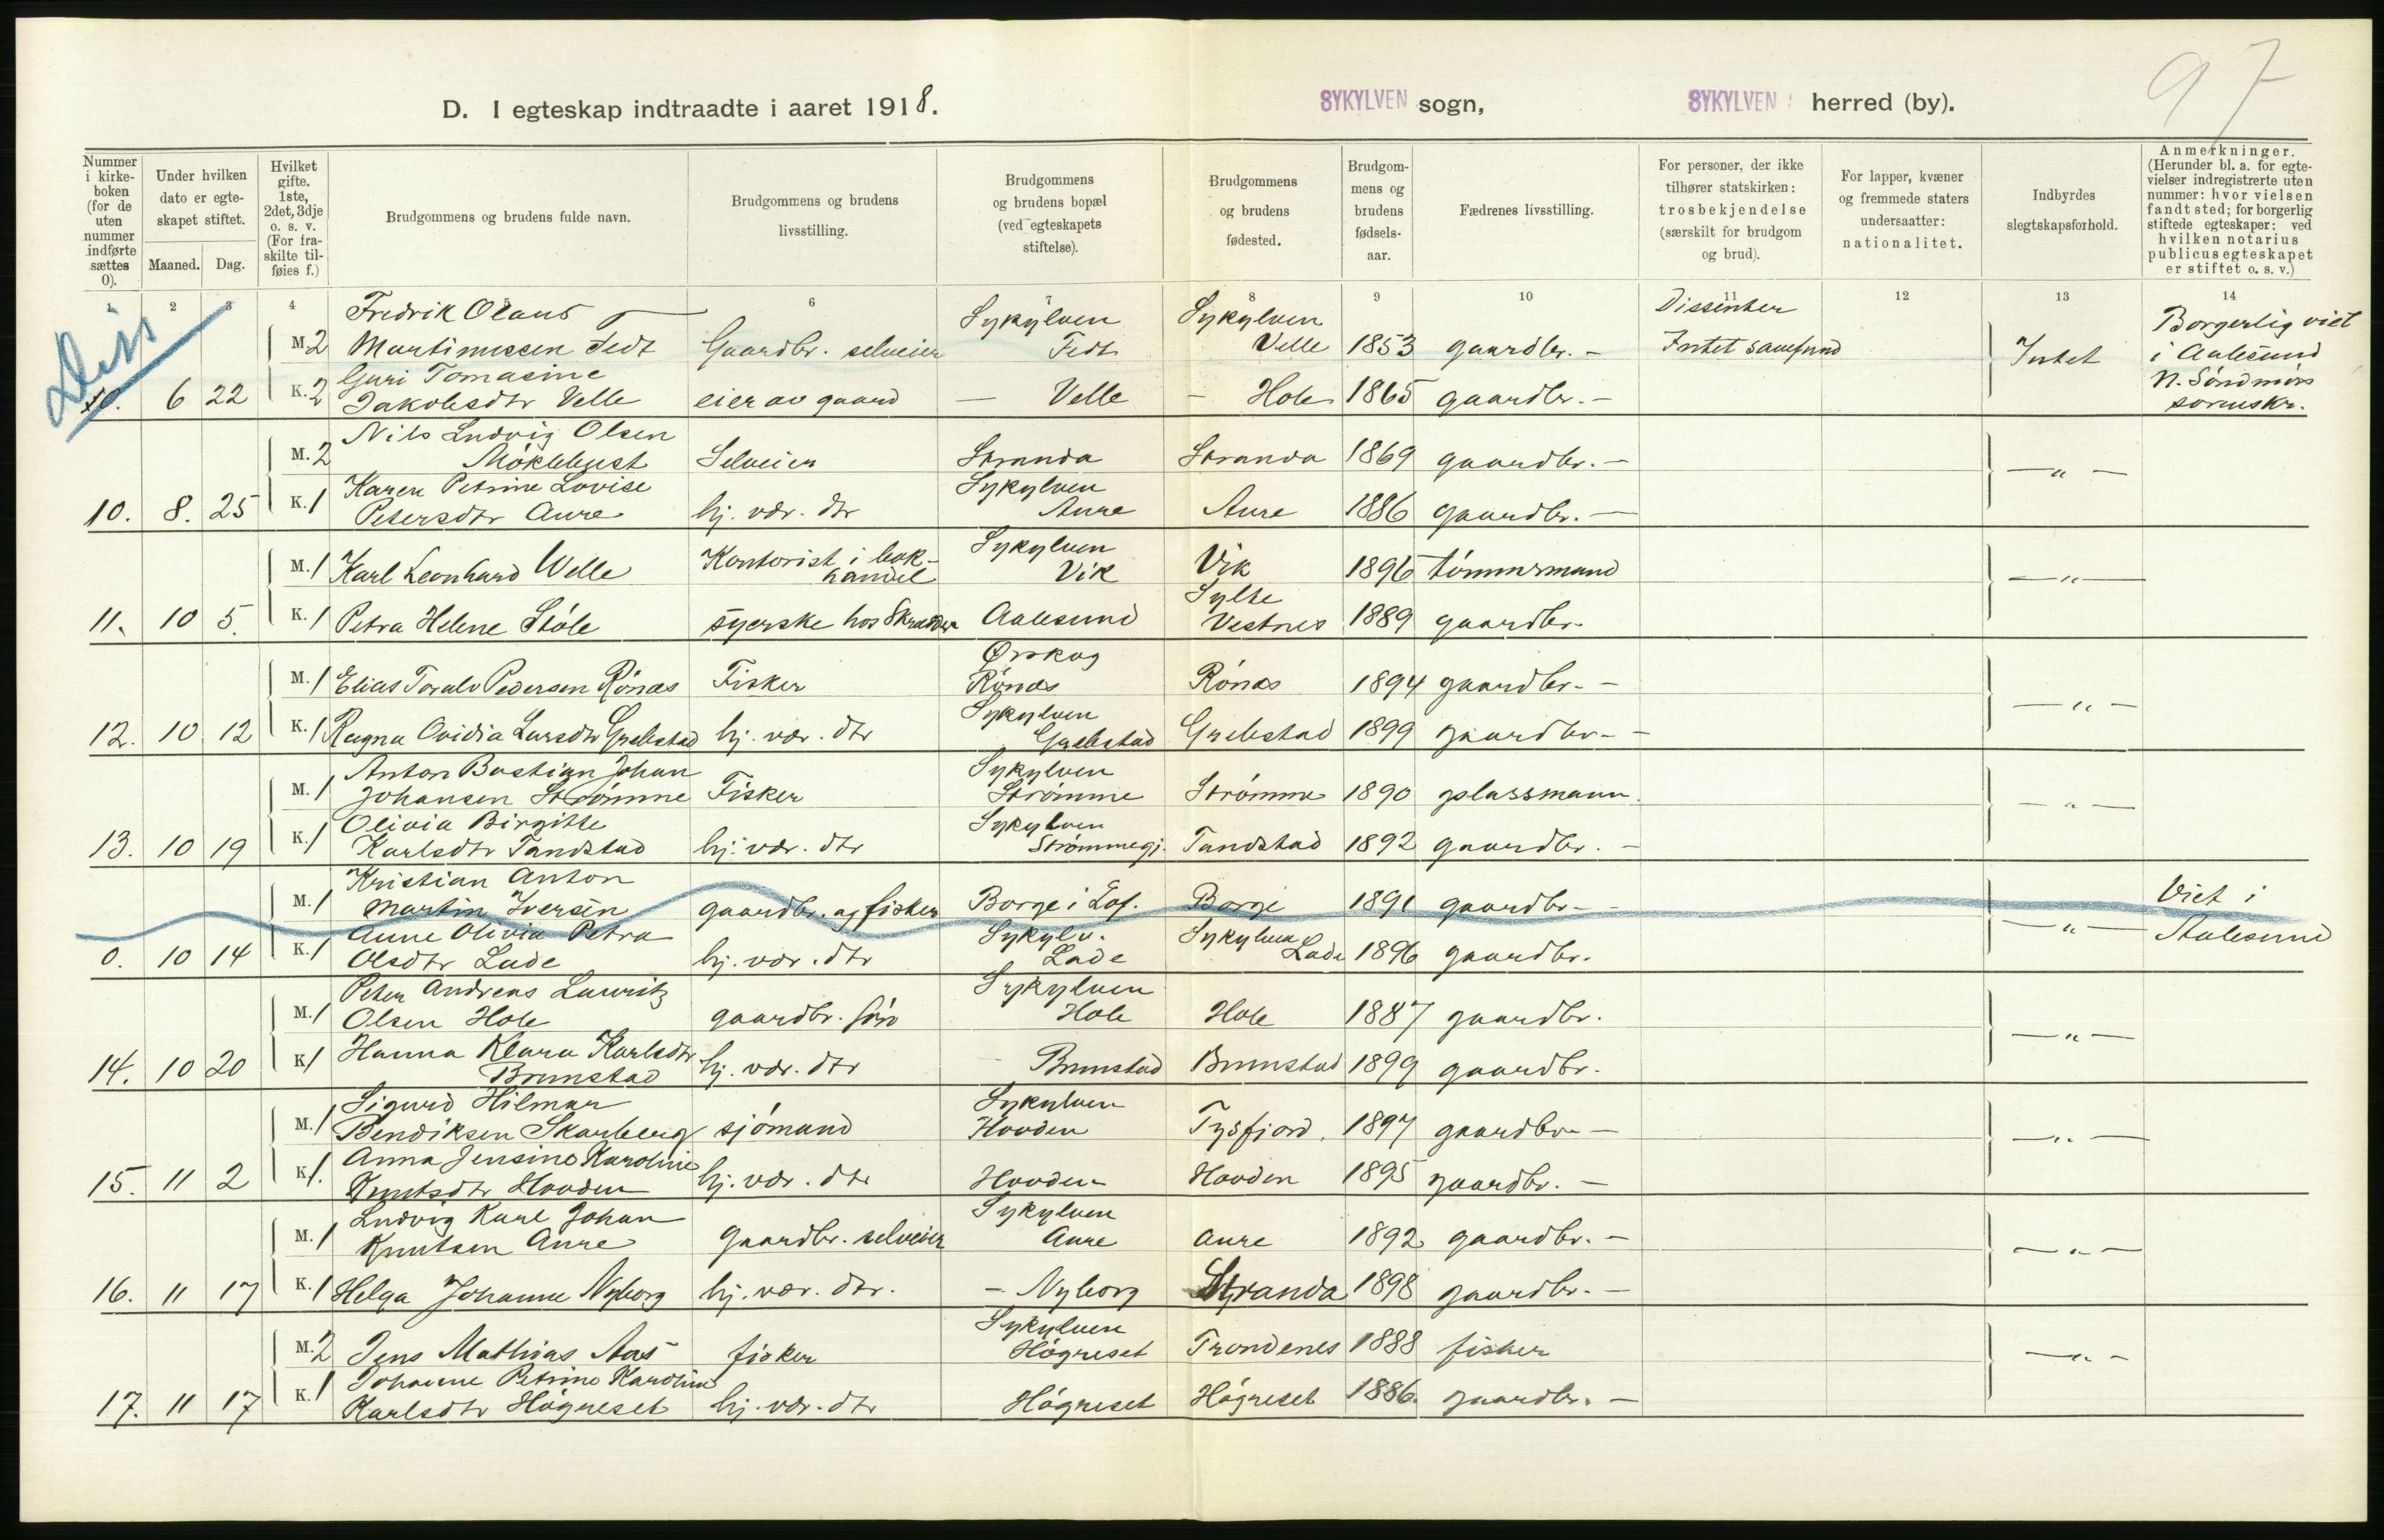 97
D. I egteskap indtraadte i aaret 1918. SYKYLVEN sogn, SYKYLVEN herred (by).
Nummer i kirkeboken (for de uten nummer indførte sættes 0).
Under hvilken dato er egteskapet stiftet.
Maaned. Dag.
Hvilket gifte. 1ste, 2det, 3dje o. s. v. (For fraskilte tilføies f.)
Brudgommens og brudens fulde navn.
Brudgommens og brudens livsstilling.
Brudgommens og brudens bopæl (ved egteskapets stiftelse).
Brudgommens og brudens fødested.
Brudgommens og brudens fødselsaar.
Fædrenes livsstilling.
For personer, der ikke tilhører statskirken: trosbekjendelse (særskilt for brudgom og brud).
For lapper, kvæner og fremmede staters undersaatter: nationalitet.
Indbyrdes slegtskapsforhold.
Anmerkninger. (Herunder bl. a. for egtevielser indregistrerte uten nummer: hvor vielsen fandt sted; for borgerlig stiftede egteskaper: ved hvilken notarius publicus egteskapet er stiftet o. s. v.)
1 2 3 4 5 6 7 8 9 10 11 12 13 14
Diss
M. 2 Fredrik Olaus Martinussen Fedt Gaardbr. selveier Sykylven Fedt Sykylven Velle 1853 gaardbr. - Dissenter Intet samfund Intet Borgerlig viet i Aalesund N. Søndmørs sorenskr.
6 22 K. 2 Guri Tomasine Jakobsdtr Velle eier av gaard — Velle - Hole 1865 gaardbr. -
M. 2 Nils Ludvig Olsen Møklebust Selveier Stranda Stranda 1869 gaardbr. - —"—
10. 8. 25 K. 1 Karen Petrine Lovise Petersdtr Aure hj. vær. dtr Sykylven Aure Aure 1886 gaardbr. —
M. 1 Karl Leonhard Welle Kontorist i bokhandel Sykylven Vik Vik 1896 tømmermand —"—
11. 10 5. K. 1 Petra Helene Støle syerske hos Skrædder Aalesund Sylte Vestnes 1889 gaardbr.
M. 1 Elias Toralv Pedersen Rønæs Fisker Ørskog Rønæs Rønæs 1894 gaardbr. - —"—
12. 10. 12 K. 1 Ragna Ovidia Larsdtr Grebstad hj. vær. dtr Sykylven Grebstad Grebstad 1899 gaardbr. -
M. 1 Anton Bastian Johan Johansen Strømme Fisker Sykylven Strømme Strømme 1890 plassmann. —"—
13. 10 19 K. 1 Olivia Birgitte Karlsdtr Tandstad hj. vær. dtr Sykylven Strømmegj. Tandstad 1892 gaardbr. -
M. 1 Kristian Anton Martin Iversen gaardbr. og fisker Borge i Lof. Borge 1891 gaardbr. - —"— Viet i Aalesund
0. 10 14 K. 1 Anne Olivia Petra Olsdtr Lade hj. vær. dtr Sykylv. Lade Sykylven Lade 1896 gaardbr.
M. 1 Peter Andreas Lauritz Olsen Hole gaardbr. søn Sykylven Hole Hole 1887 gaardbr. —"—
14. 10 20 K. 1 Hanna Klara Karlsdtr Brunstad hj. vær. dtr - Brunstad Brunstad 1899 gaardbr.
M. 1 Sigurd Hilmar Bendiksen Skarberg sjømand Sykylven Hovden Tysfjord. 1897 gaardbr. - —"—
15. 11 2 K. 1. Anna Jensine Karoline Knutsdtr Hovden hj. vær. dtr Hovden Hovden 1895 gaardbr. —
M. 1 Ludvig Karl Johan Knutsen Aure gaardbr. selveier Sykylven Aure Aure 1892 gaardbr. - —"—
16. 11 17 K. 1 Helga Johanne Nyborg hj. vær. dtr. - Nyborg Stranda 1898 gaardbr. -
M. 2 Jens Mathias Aas fisker Sykylven Høgreset Trondenes 1888 fisker —"—
17. 11 17 K. 1 Johanne Petrine Karoline Karlsdtr Høgreset hj. vær. dtr Høgreset Høgreset 1886. gaardbr. -